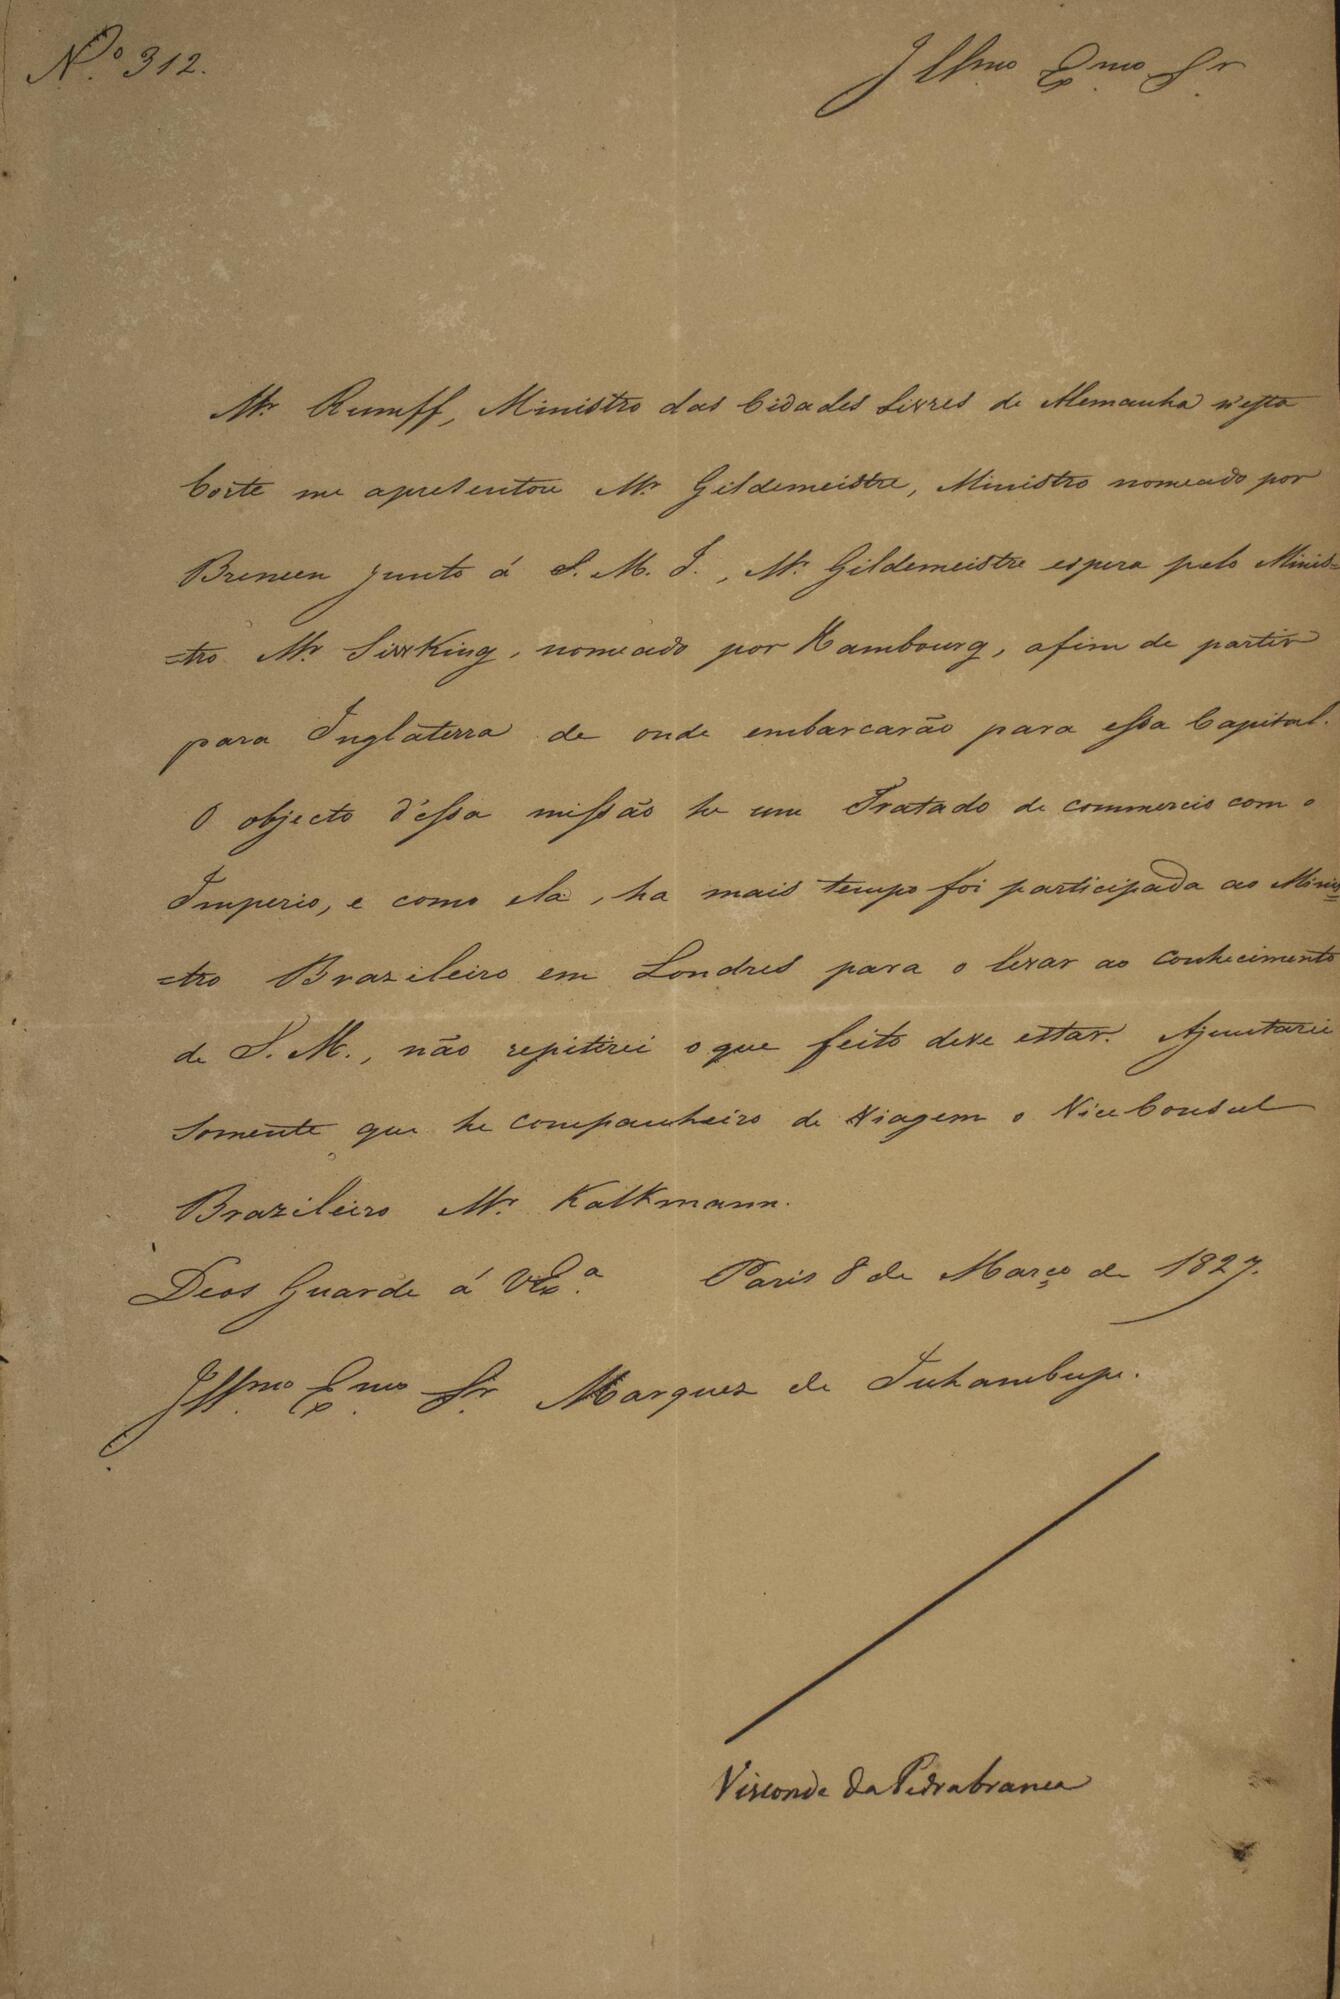 N.º 312.
Illmo Exmo Sr
Mr Rumff, Ministro das Cidades Livres de Alemanha n'esta
Corte me apresentou Mr Gildemeistre, Ministro nomeado por
Bremen junto á S. M. I., Mr. Gildemeistre espera pelo Minis=
=tro Mr SivvKing, nomeado por Hambourg, afim de partir
para Inglaterra de onde embarcarão para essa Capital.
O objecto d'essa missão he um Tratado de commercio com o
Imperio, e como ela, ha mais tempo foi participada ao Minis=
=tro Brazileiro em Londres para o levar ao conhecimento
de S. M., não repitirei o que feito deve estar. Ajuntarei
somente que he companheiro de Viagem o Vice Consul
Brazileiro Mr. Kalkmann.
Deos Guarde á VExª. Paris 8 de Março de 1827.
Illmo Exmo Sr Marquez de Inhambupe.
Visconde da Pedrabranca